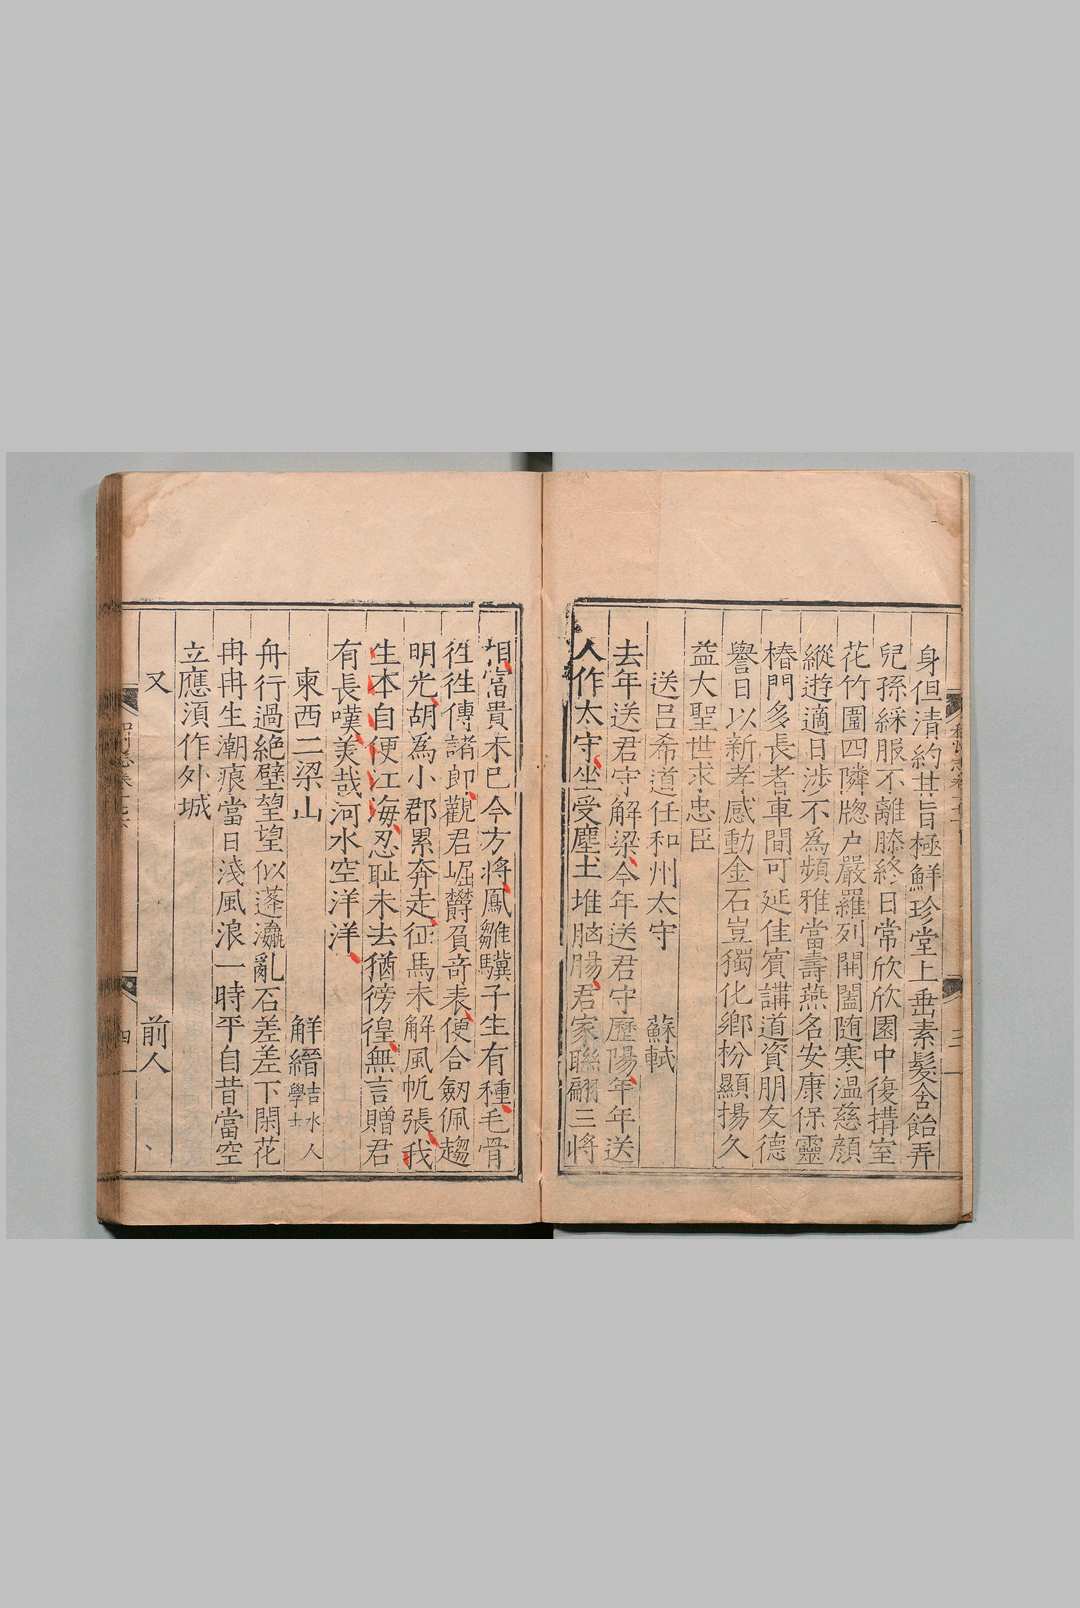 身但清約其旨極鮮珍堂上垂素髮含飴弄
兒孫綵服不離膝終日常欣欣園中復搆室
花竹圍四隣牎户嚴羅列開闔随寒温慈顔
縱遊適日渉不為頻雅當壽燕名安康保靈
椿門多長者車間可延佳賓講道資朋友德
譽日以新孝感動金石豈獨化鄉枌顯揚久
益大聖世求忠臣
送吕希道任和州太守 蘇軾
去年送君守解梁今年送君守歷陽年年送
人作太守坐受塵土堆胸腸君家聯翩三將
相富貴未已今方將鳳雛驥子生有種毛骨
徃徃傳諸郎觀君崛欝負竒表便合劔佩趨
明光胡為小郡累奔走征馬未解風帆張我
生本自便江海忍耻未去猶徬徨無言贈君
有長嘆美哉河水空洋洋
東西二梁山 解縉吉水人學士
舟行過絶壁望望似蓬瀛亂石差差下閑花
冉冉生潮痕當日淺風浪一時平自昔當空
立應湏作外城
又 前人
和州志卷十六
四